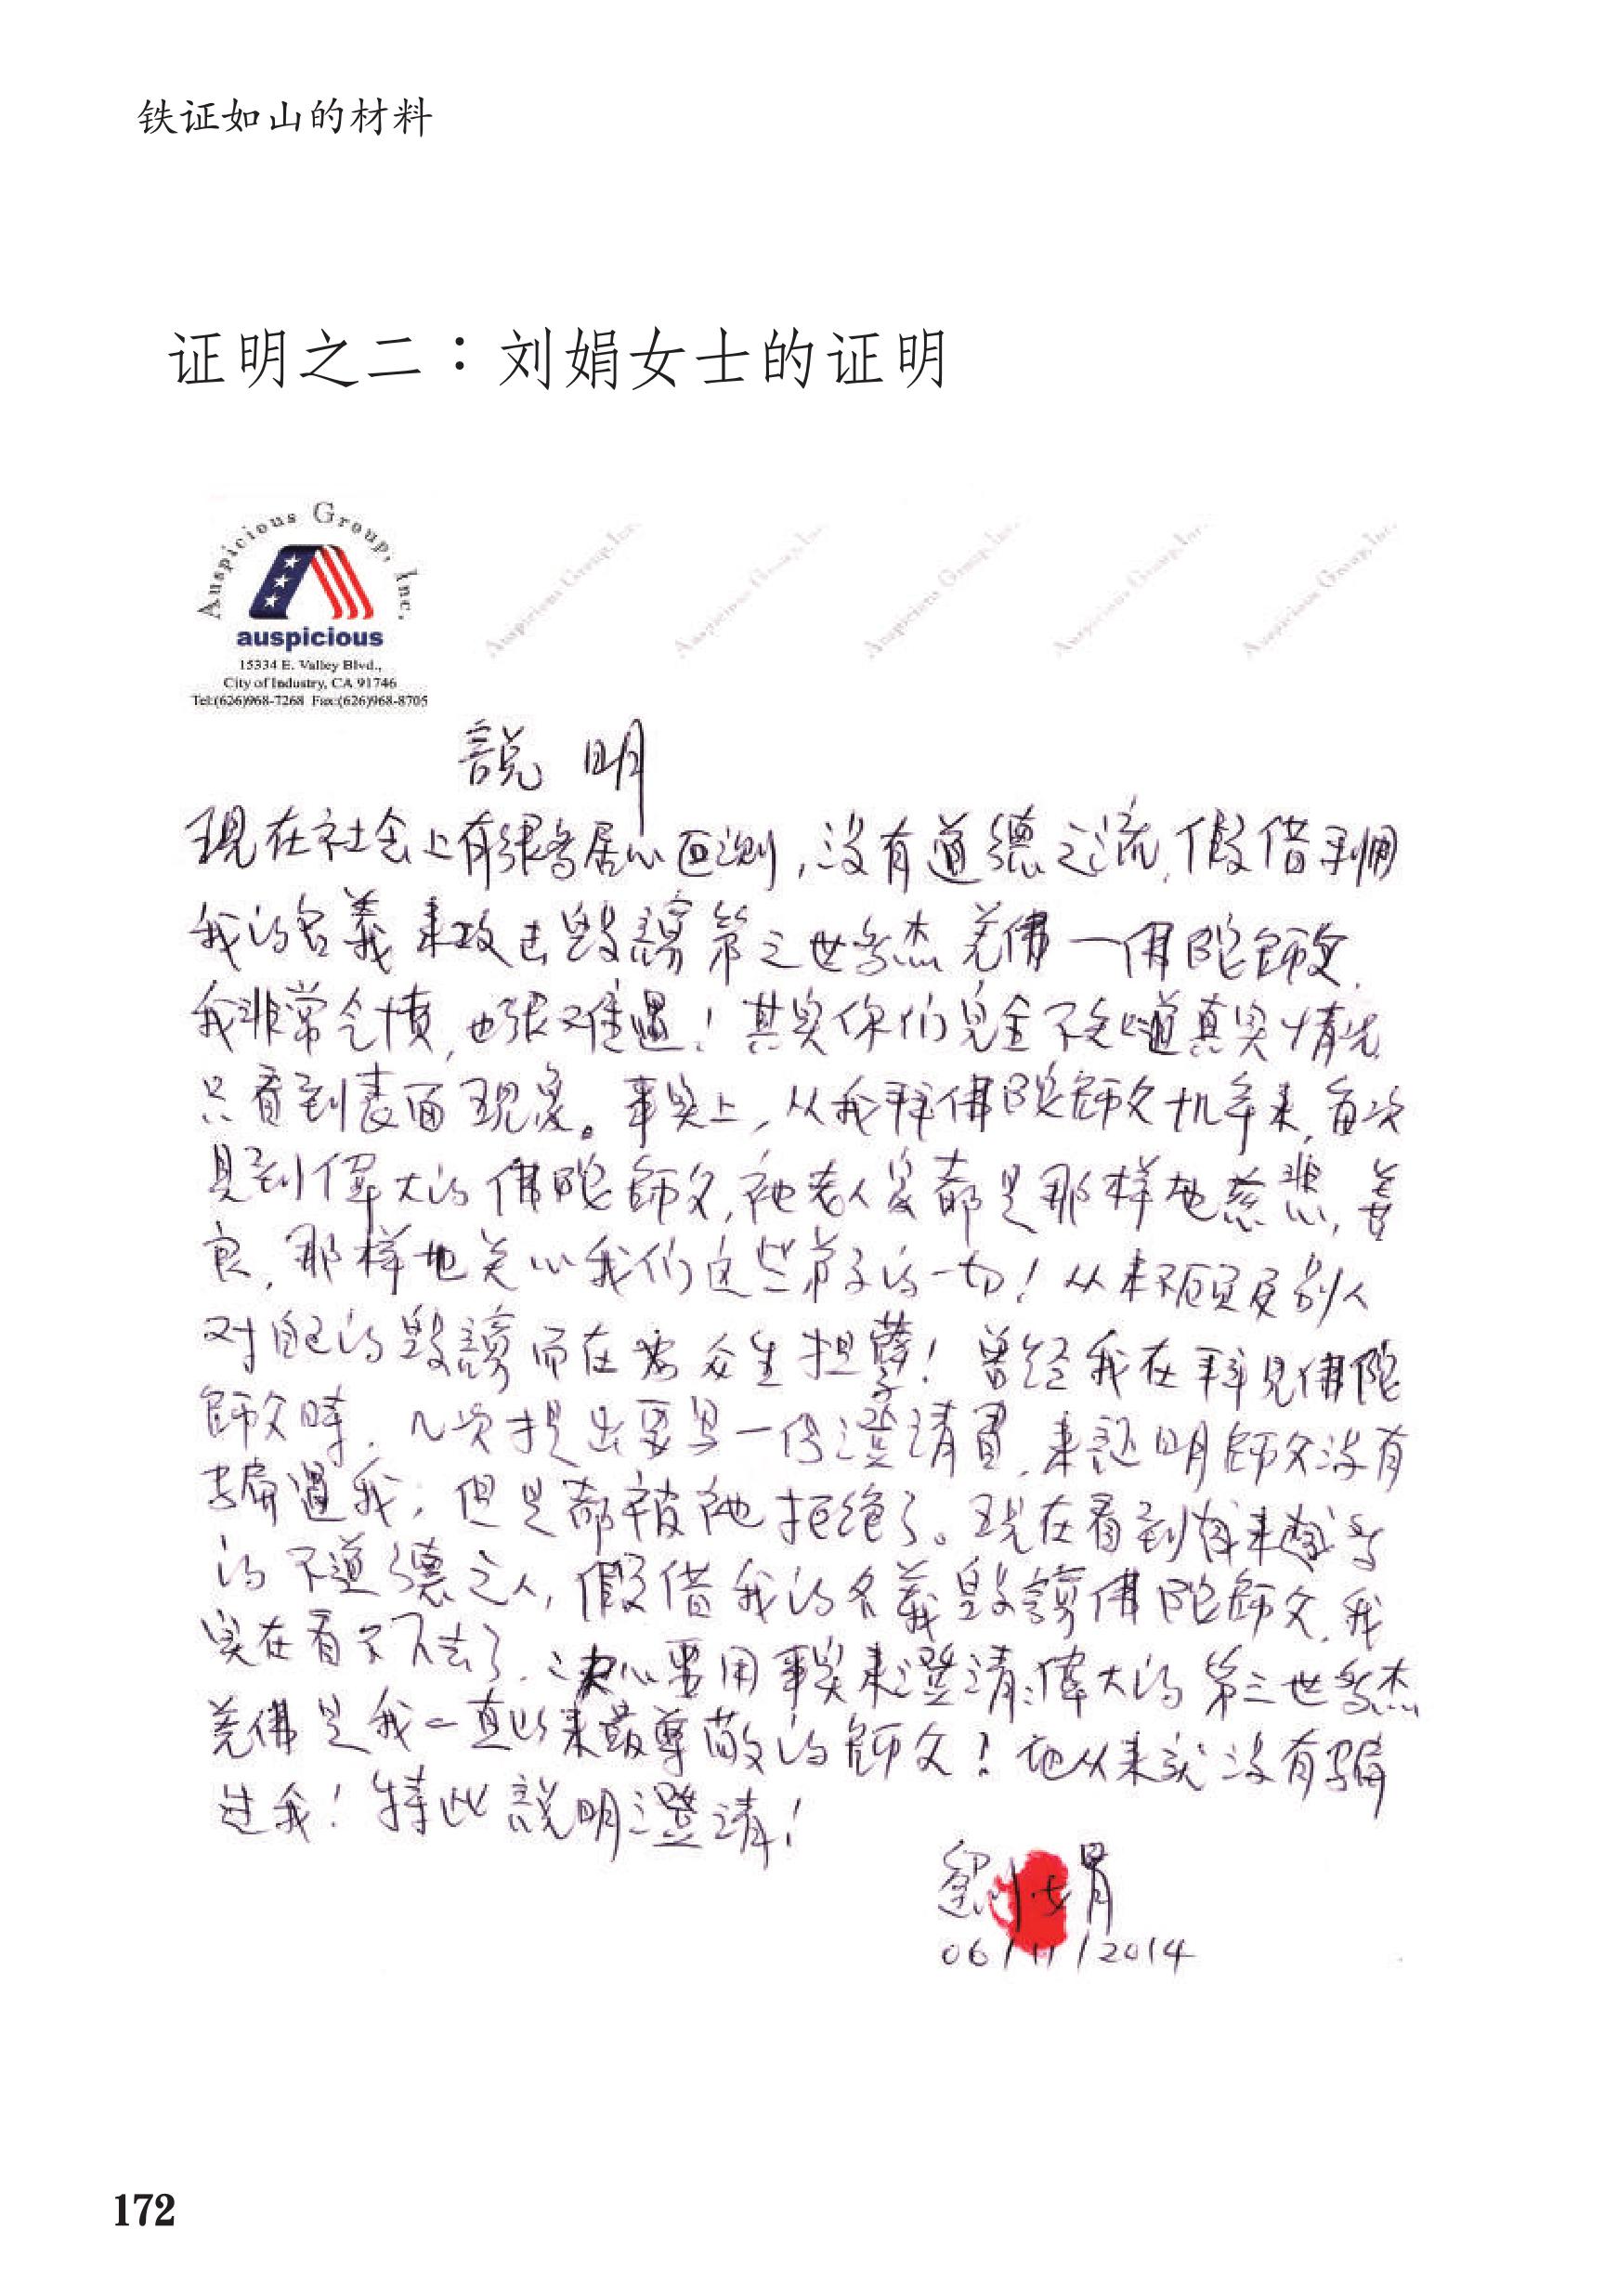 铁证如山的材料
证明之二：刘娟女士的证明
Auspicious Group, Inc.
auspicious
15334 E. Valley Blvd.,
City of Industry, CA 91746
Tel:(626)968-7268 Fax:(626)968-8705
Auspicious Group, Inc. Auspicious Group, Inc. Auspicious Group, Inc. Auspicious Group, Inc. Auspicious Group, Inc.
説明
現在社会上有很多居心叵测,没有道德之流,假借利用
我的名義来攻击毁謗第三世多杰羌佛一佛陀師父,
我非常气愤,也很难過!其实你们完全不知道真实情况,
只看到表面现象。事实上,从我拜佛陀師父十几年来,每次
見到偉大的佛陀師父,祂老人家都是那样地慈悲,善
良,那样地关心我们这些弟子的一切!从来不顾及别人
对自己的毁謗而在為众生担孽!曾经我在拜見佛陀
師父時,几次提出要写一份澄清書,来証明師父没有
骗過我,但是都被祂拒绝了。现在看到有来越多
的不道德之人,假借我的名義毁謗佛陀師父,我
实在看不下去了,决心要用事实来澄清:偉大的第三世多杰
羌佛是我一直以来最尊敬的師父!祂从来就没有骗
过我!特此説明澄清!
劉娟
06/11/2014
172